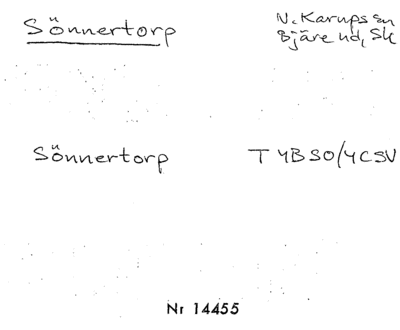 Sönnertorp
N. Karups sn
Bjäre hd, Sk
Sönnertorp
T 4BSO/4CSV
Nr 14455